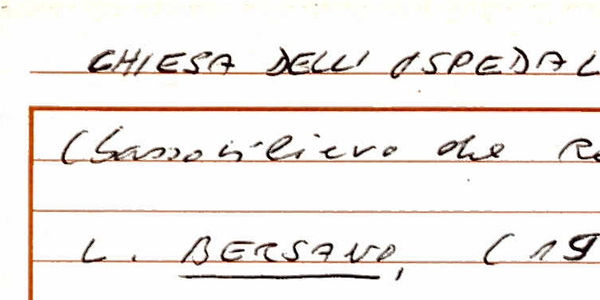 CHIESA DELL' OSPEDAL
(bassorilievo che R
L. BERSANO, (19